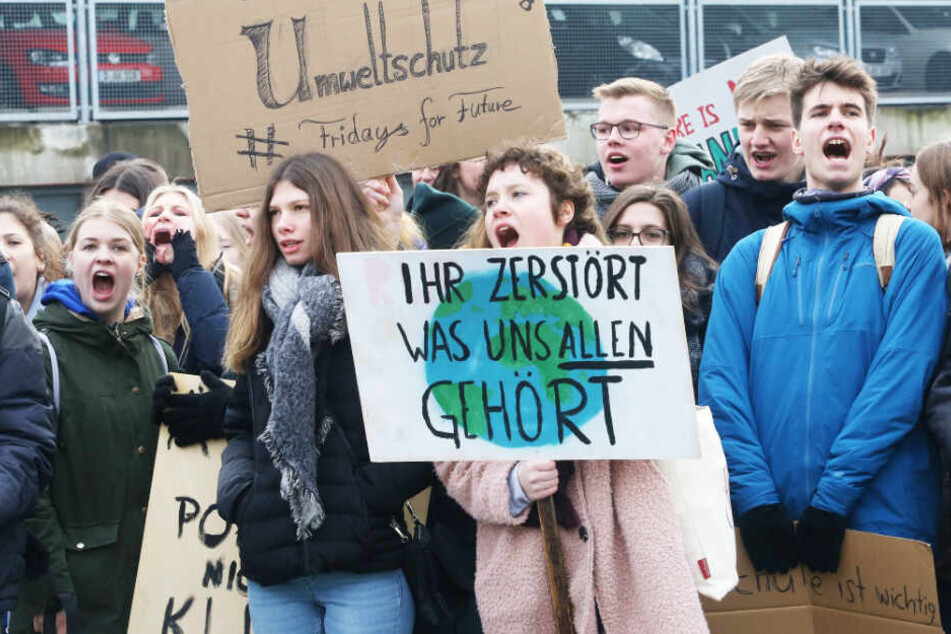 Umweltschutz
# Fridays for Future
IHR ZERSTÖRT
WAS UNS ALLEN
GEHÖRT
ist wichtig